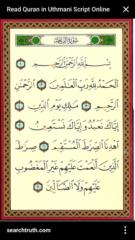 Read Quran in Uthmani Script Online
سورة الفاتحة
بِسْمِ اللَّهِ الرَّحْمَٰنِ الرَّحِيمِ
الْحَمْدُ لِلَّهِ رَبِّ الْعَالَمِينَ الرَّحْمَٰنِ
الرَّحِيمِ مَالِكِ يَوْمِ الدِّينِ
إِيَّاكَ نَعْبُدُ وَإِيَّاكَ نَسْتَعِينُ
اهْدِنَا الصِّرَاطَ الْمُسْتَقِيمَ صِرَاطَ
الَّذِينَ أَنْعَمْتَ عَلَيْهِمْ غَيْرِ الْمَغْضُوبِ
عَلَيْهِمْ وَلَا الضَّالِّينَ
searchtruth.com